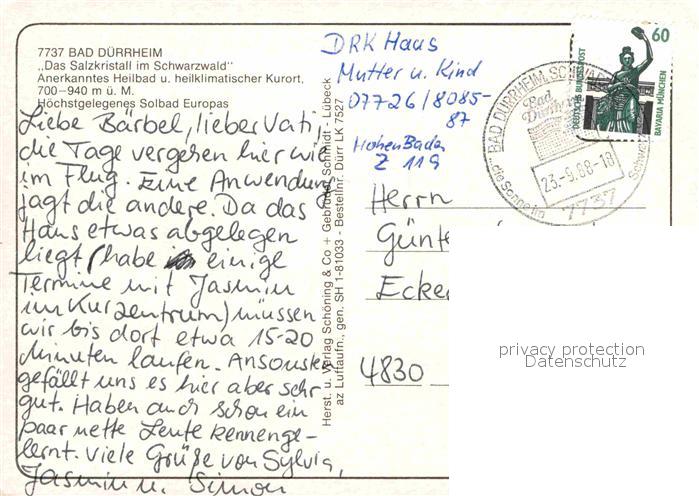 7737 BAD DÜRRHEIM
„Das Salzkristall im Schwarzwald"
Anerkanntes Heilbad u. heilklimatischer Kurort,
700–940 m ü. M.
Höchstgelegenes Solbad Europas
Liebe Bärbel, lieber Vati,
die Tage vergehen hier wie
im Flug. Eine Anwendung
jagt die andere. Da das
Haus etwas abgelegen
liegt (habe einige
Termine mit Jasmin
im Kurzentrum) müssen
wir bis dort etwa 15-20
Minuten laufen. Ansonsten
gefällt uns es hier aber sehr
gut. Haben auch schon ein
paar nette Leute kennenge-
lernt. Viele Grüße von Sylvia,
Jasmin u. Simon
Herst. u. Verlag Schöning & Co + Gebrüder Schmidt - Lübeck
az Luftaufn., gen. SH 1-81033 - Bestellnr. Dürr LK 7527
DRK Haus
Mutter u. Kind
07726/8085-
87
Hohen Baden
Z 119
60
DEUTSCHE BUNDESPOST
BAVARIA MÜNCHEN
BAD DÜRRHEIM, SCHWARZW
Bad
Dürrheim
23.-9.88-18
...die Sonne im
7737
Herrn
Günte
Ecke
4830
privacy protection
Datenschutz